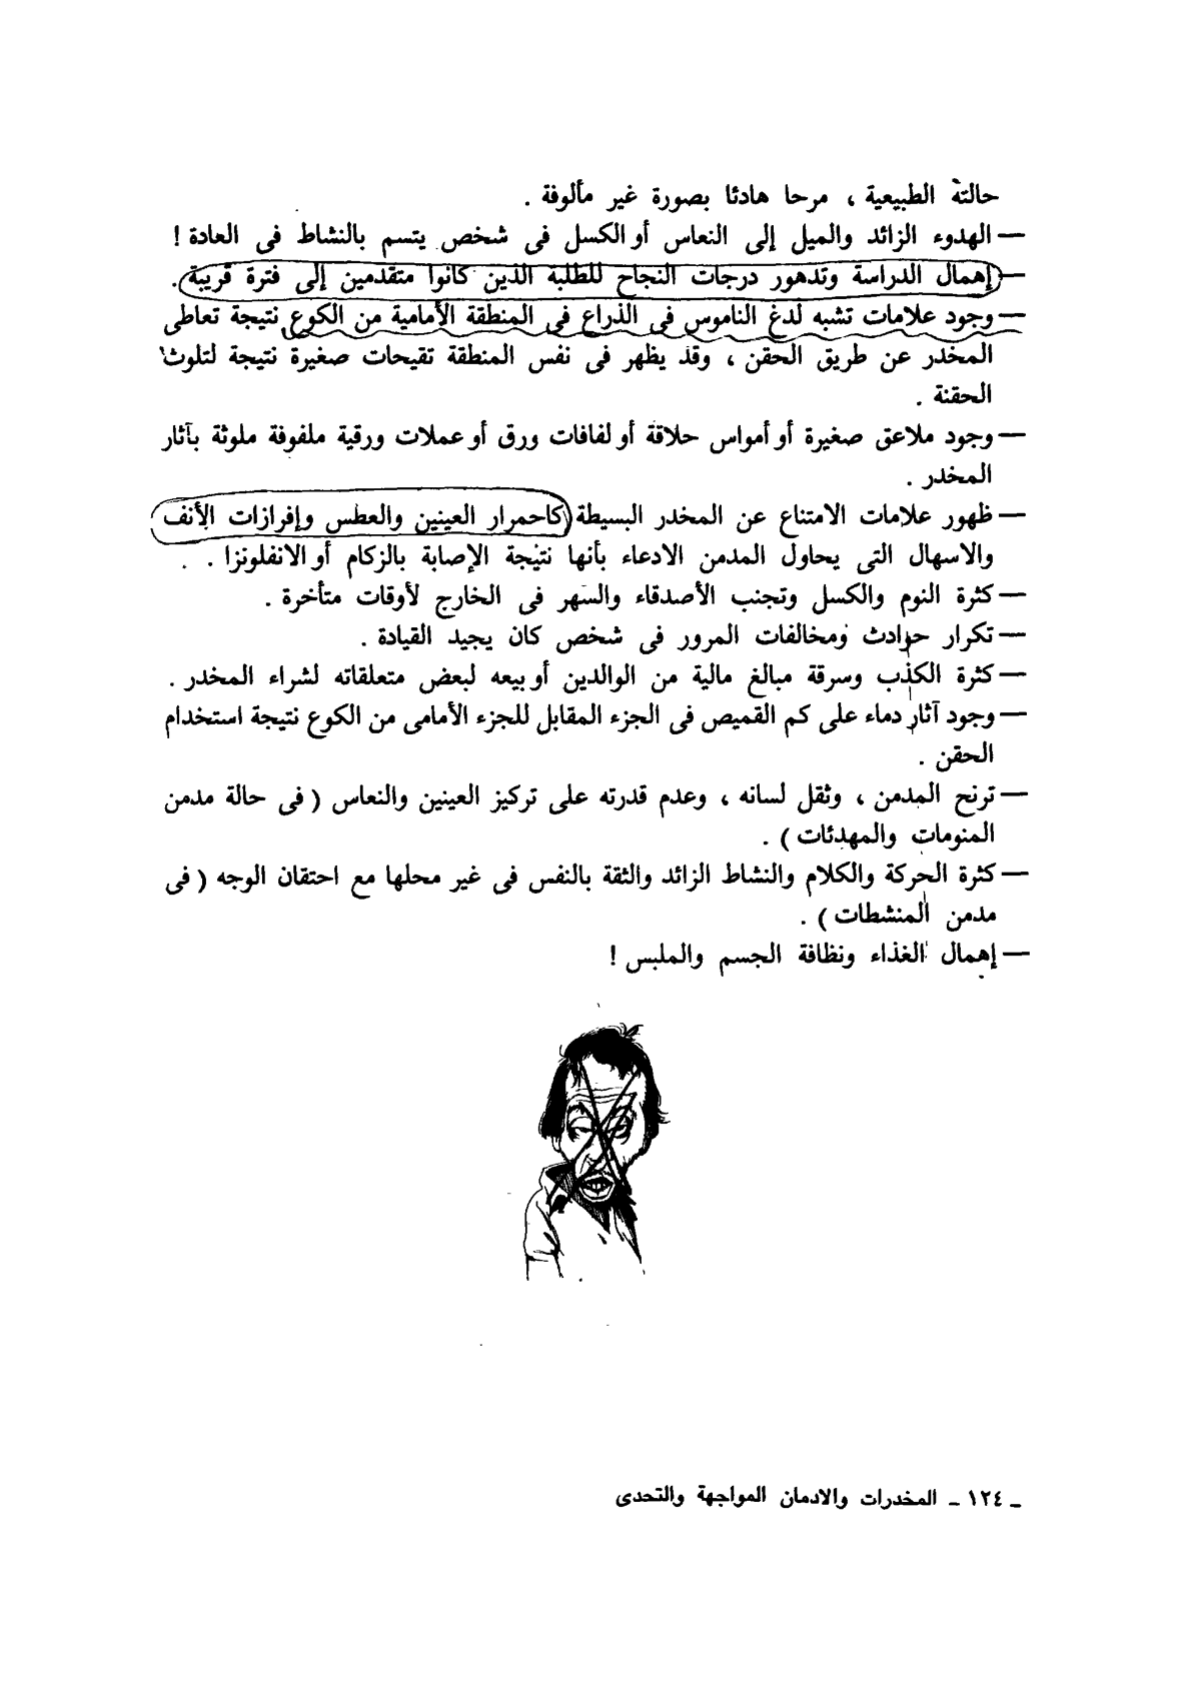 حالته الطبيعية ، مرحا هادئا بصورة غير مألوفة .
— الهدوء الزائد والميل إلى النعاس أو الكسل فى شخص يتسم بالنشاط فى العادة !
— إهمال الدراسة وتدهور درجات النجاح للطلبة الذين كانوا متقدمين إلى فترة قريبة .
— وجود علامات تشبه لدغ الناموس فى الذراع فى المنطقة الأمامية من الكوع نتيجة تعاطى
المخدر عن طريق الحقن ، وقد يظهر فى نفس المنطقة تقيحات صغيرة نتيجة لتلوث
الحقنة .
— وجود ملاعق صغيرة أو أمواس حلاقة أو لفافات ورق أو عملات ورقية ملفوفة ملوثة بآثار
المخدر .
— ظهور علامات الامتناع عن المخدر البسيطة كاحمرار العينين والعطس وإفرازات الأنف
والاسهال التى يحاول المدمن الادعاء بأنها نتيجة الإصابة بالزكام أو الانفلونزا . .
— كثرة النوم والكسل وتجنب الأصدقاء والسهر فى الخارج لأوقات متأخرة .
— تكرار حوادث ومخالفات المرور فى شخص كان يجيد القيادة .
— كثرة الكذب وسرقة مبالغ مالية من الوالدين أو بيعه لبعض متعلقاته لشراء المخدر .
— وجود آثار دماء على كم القميص فى الجزء المقابل للجزء الأمامى من الكوع نتيجة استخدام
الحقن .
— ترنح المدمن ، وثقل لسانه ، وعدم قدرته على تركيز العينين والنعاس ( فى حالة مدمن
المنومات والمهدئات ) .
— كثرة الحركة والكلام والنشاط الزائد والثقة بالنفس فى غير محلها مع احتقان الوجه ( فى
مدمن المنشطات ) .
— إهمال الغذاء ونظافة الجسم والملبس !
ـ ١٢٤ ـ المخدرات والادمان المواجهة والتحدى